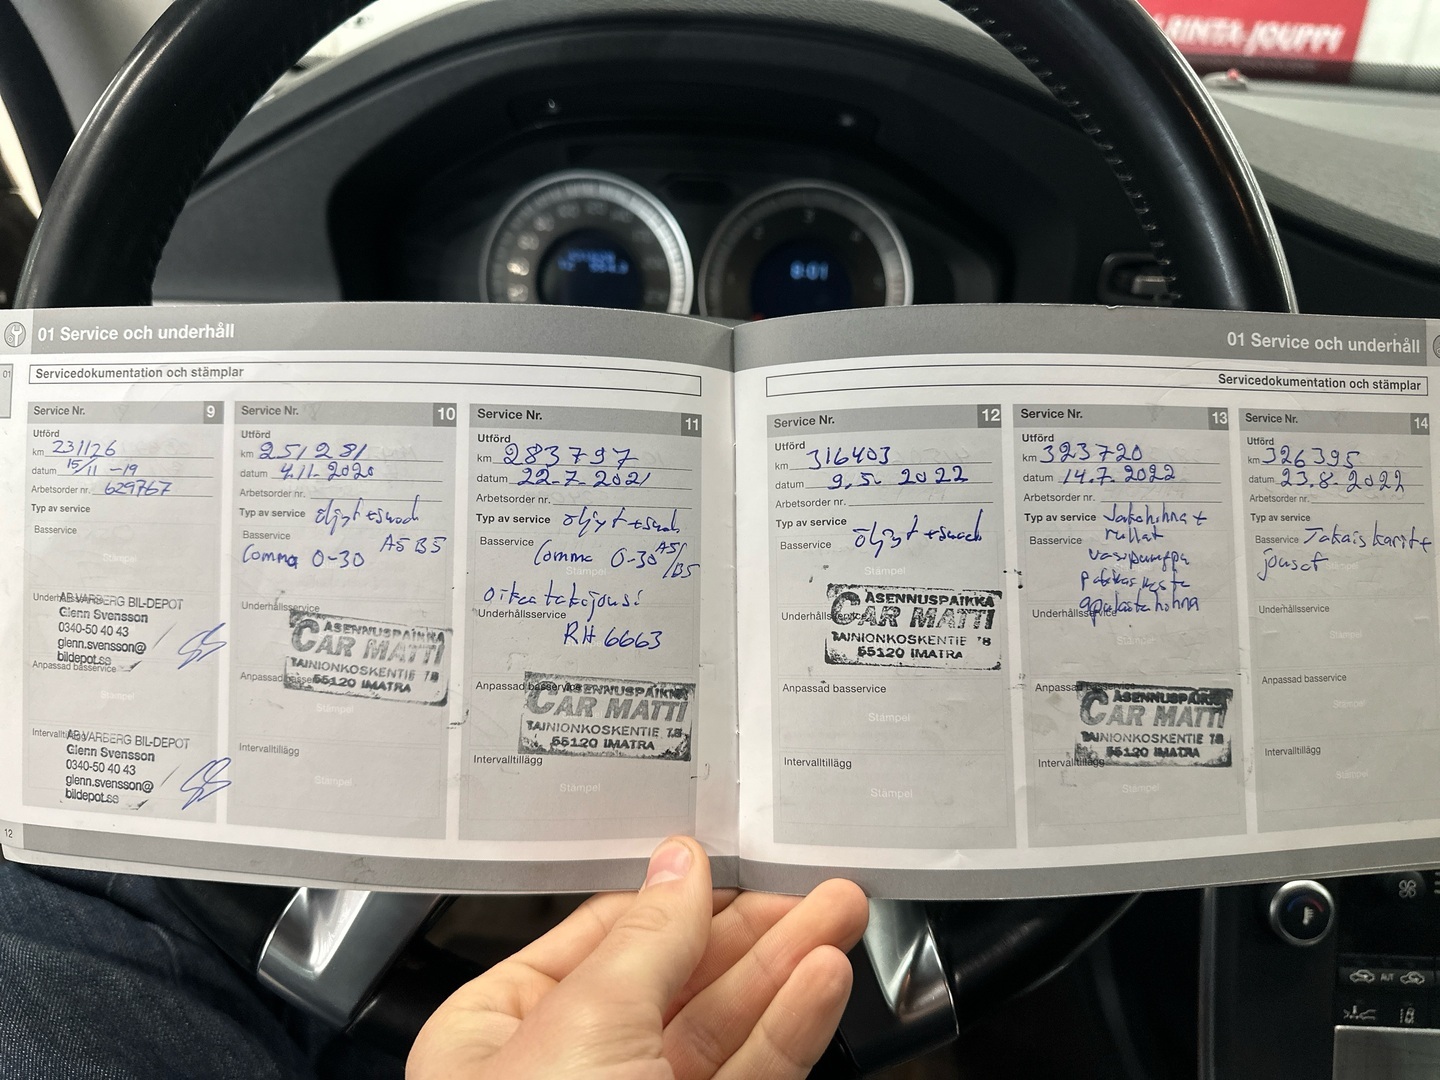 RINTA-JOUPPI
8:01
01 Service och underhåll
01
Servicedokumentation och stämplar
Service Nr. 9
Utförd
km 231126
datum 15/11 -19
Arbetsorder nr. 629767
Typ av service
Basservice
Stämpel
Underhållsservice
AB VARBERG BIL-DEPOT
Glenn Svensson
0340-50 40 43
glenn.svensson@
bildepot.se
Anpassad basservice
Stämpel
Intervalltillägg
AB VARBERG BIL-DEPOT
Glenn Svensson
0340-50 40 43
glenn.svensson@
bildepot.se
12
Service Nr. 10
Utförd
km 251281
datum 4.11.2020
Arbetsorder nr.
Typ av service öljyt + suod
Basservice A5 B5
Comma 0-30
Underhållsservice
ASENNUSPAIKKA
CAR MATTI
TAINIONKOSKENTIE 78
55120 IMATRA
Anpassad basservice
Stämpel
Intervalltillägg
Stämpel
Service Nr. 11
Utförd
km 283797
datum 22.7.2021
Arbetsorder nr.
Typ av service öljyt + suod
Basservice Comma 0-30 A5/B5
Stämpel
Oikea takajousi
Underhållsservice
RH 6663
Anpassad basservice
ASENNUSPAIKKA
CAR MATTI
TAINIONKOSKENTIE 78
55120 IMATRA
Intervalltillägg
Stämpel
01 Service och underhåll
Servicedokumentation och stämplar
Service Nr. 12
Utförd
km 316403
datum 9.5. 2022
Arbetsorder nr.
Typ av service
Basservice öljyt + suod
Stämpel
Underhållsservice
ASENNUSPAIKKA
CAR MATTI
TAINIONKOSKENTIE 78
55120 IMATRA
Anpassad basservice
Stämpel
Intervalltillägg
Stämpel
Service Nr. 13
Utförd
km 323720
datum 14.7.2022
Arbetsorder nr.
Typ av service Jakohihna +
Basservice rullat
vesipumppu
Underhållsservice
apulaitehihna
Stämpel
Anpassad basservice
ASENNUSPAIKKA
CAR MATTI
TAINIONKOSKENTIE 78
55120 IMATRA
Intervalltillägg
Stämpel
Service Nr. 14
Utförd
km 326395
datum 23.8.2022
Arbetsorder nr.
Typ av service
Basservice Takaiskarit +
jouset
Stämpel
Underhållsservice
Stämpel
Anpassad basservice
Stämpel
Intervalltillägg
Stämpel
AUT